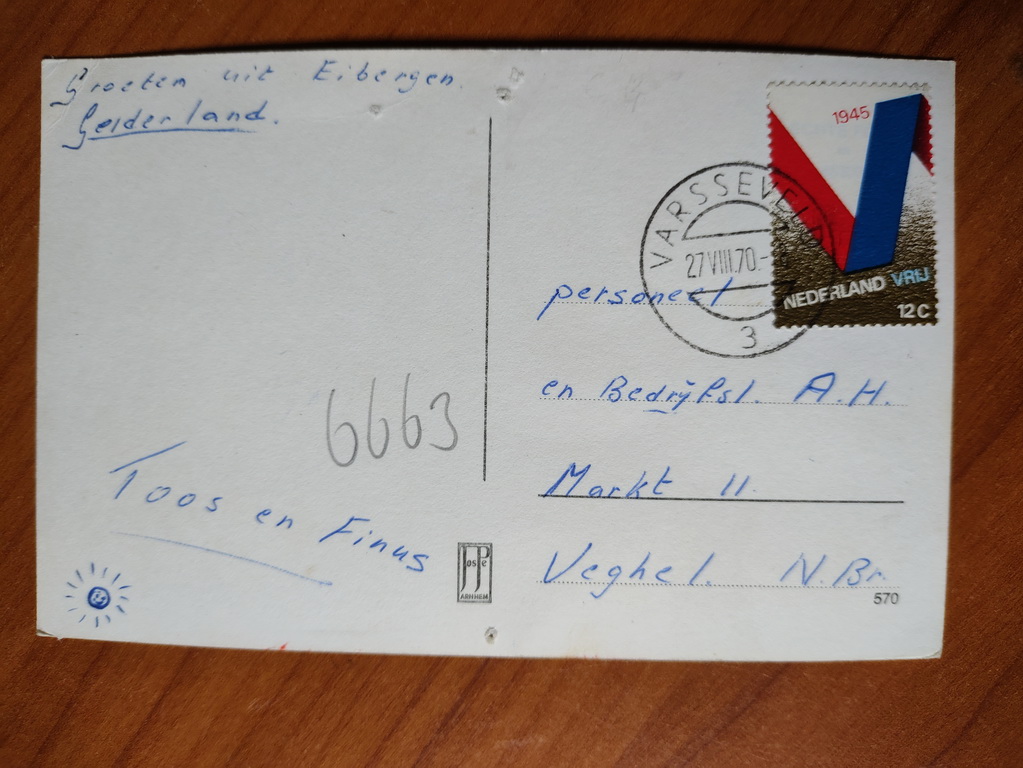 Groeten uit Eibergen.
Gelderland.
Toos en Finus
6663
JosPé
ARNHEM
1945
NEDERLAND VRIJ
12C
VARSSEVELD
27 VIII.70.-
3
personeel
en Bedrijfsl. A.H.
Markt 11.
Veghel. N.Br.
570